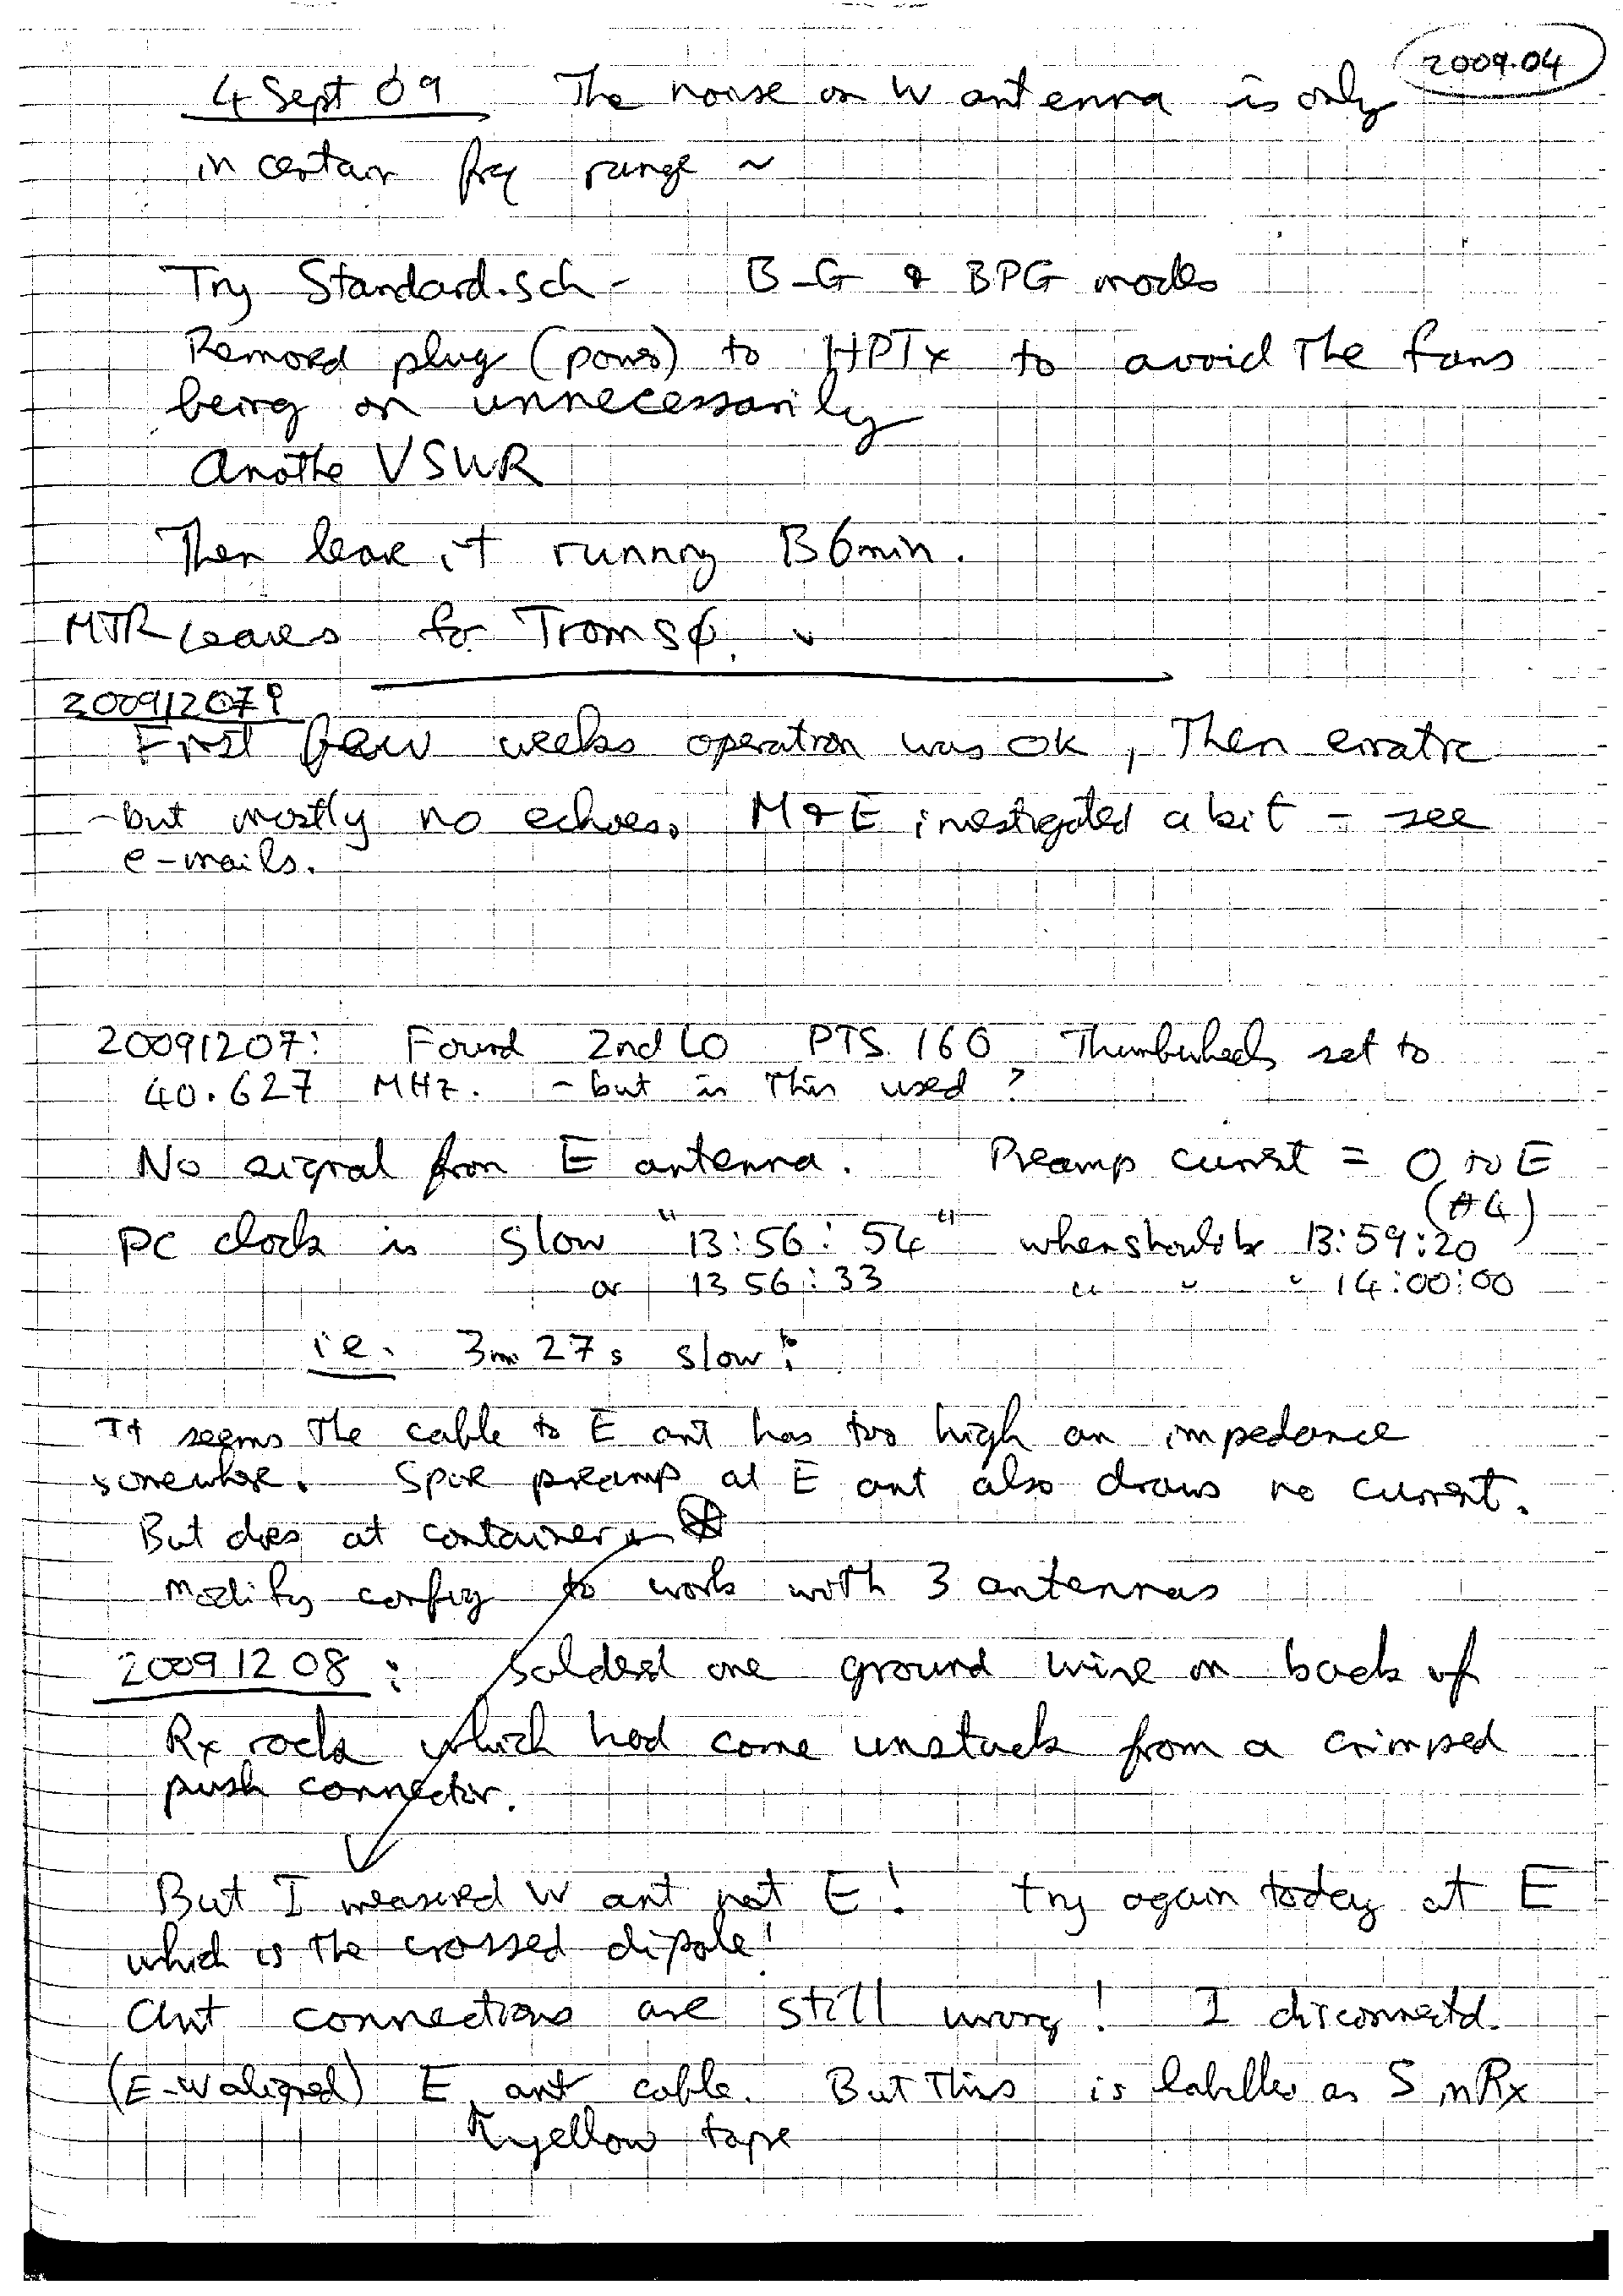 2009.04
4 Sept 09 The noise on W antenna is only
in certain frq range ~
Try Standard.sch - B-G & BPG modes
Removed plug (power) to HPTx to avoid the fans
being on unnecessarily
Another VSWR
Then leave it running B6min.
MTR leaves for Tromsø.
20091207?
First few weeks operation was OK, Then erratic
- but mostly no echoes. M & E investigated a bit - see
e-mails.
20091207: Found 2nd LO PTS 160 Thumbwheels set to
40.627 MHz. - but is this used?
No signal from E antenna. Preamp current = 0 to E
(#4)
PC clock is slow "13:56:54" when should be 13:59:20
or 13 56:33 " " " 14:00:00
i.e. 3m 27s slow!
It seems the cable to E ant has too high an impedance
somewhere. Spare preamp at E ant also draws no current.
But does at container
Modify config to work with 3 antennas
20091208: Soldered one ground wire on back of
Rx rack which had come unstuck from a crimped
push connector.
But I measured W ant not E! try again today at E
which is the crossed dipole!
Ant connections are still wrong! I disconnected
(E-W aligned) E ant cable. But this is labelled as S in Rx
↑ yellow tape